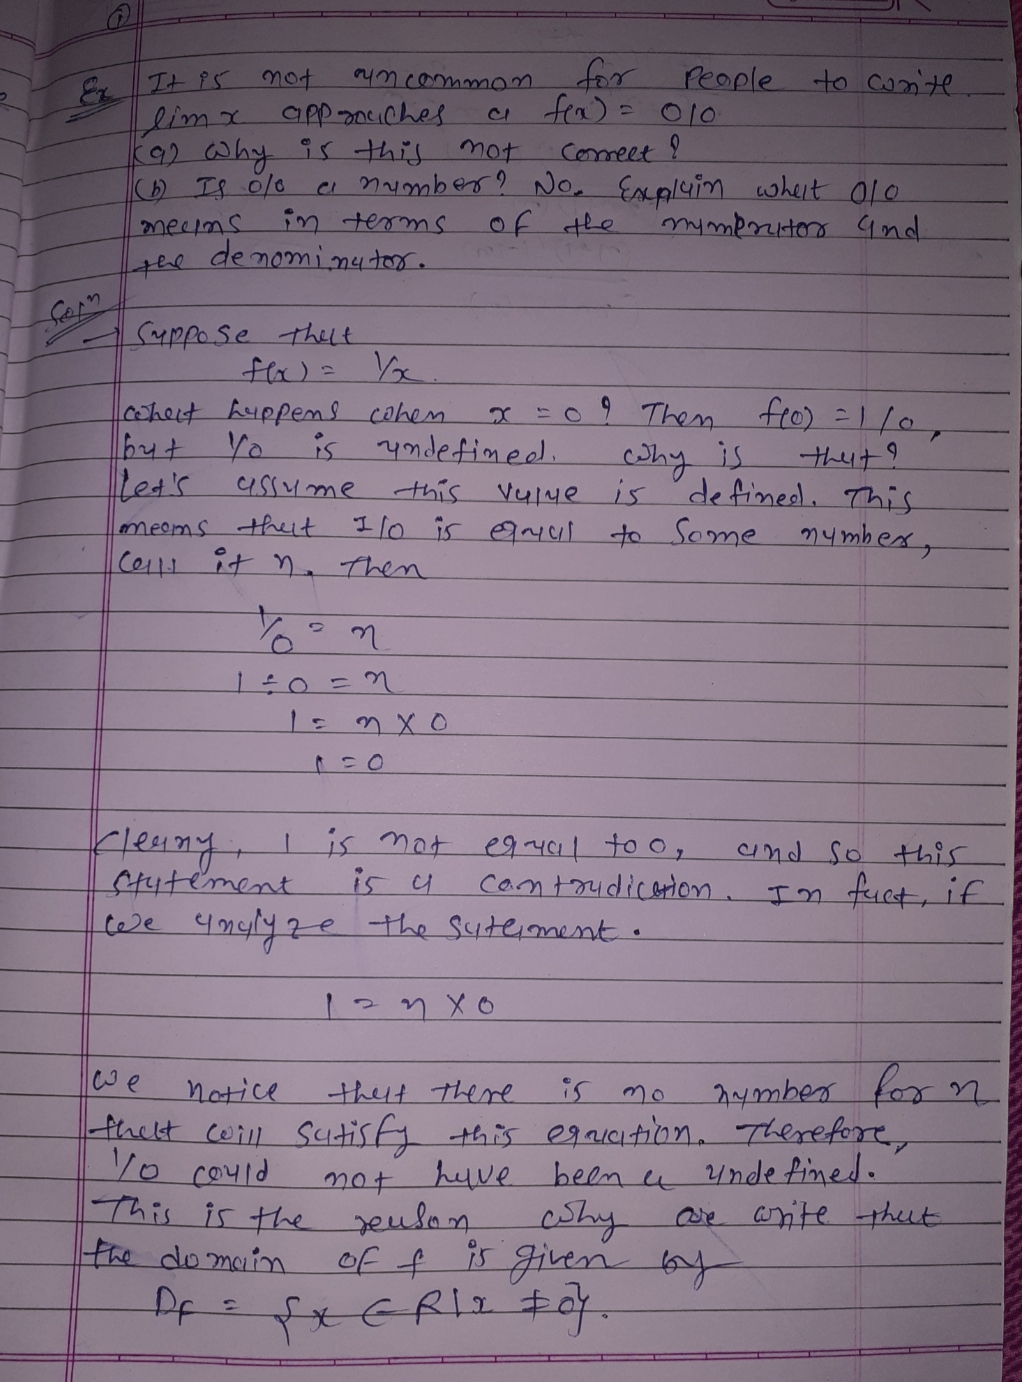 ①
Ex It is not uncommon for people to write
lim x approaches a f(x) = 0/0
(a) why is this not correct?
(b) Is 0/0 a number? No. Explain what 0/0
means in terms of the numerator and
the denominator.
Solⁿ
→ Suppose that
f(x) = 1/x.
what happens when x = 0? Then f(0) = 1/0,
but 1/0 is undefined. why is that?
Let's assume this value is defined. This
means that 1/0 is equal to some number,
call it n. Then
1/0 = n
1 ÷ 0 = n
1 = n × 0
1 = 0
Clearly, 1 is not equal to 0, and so this
statement is a contradication. In fact, if
we analyze the satement.
1 = n × 0
we notice that there is no number for n
that will satisfy this equation. Therefore,
1/0 could not have been a undefined.
This is the reason why we write that
the domain of f is given by
Df = {x ∈ R | x ≠ 0}.